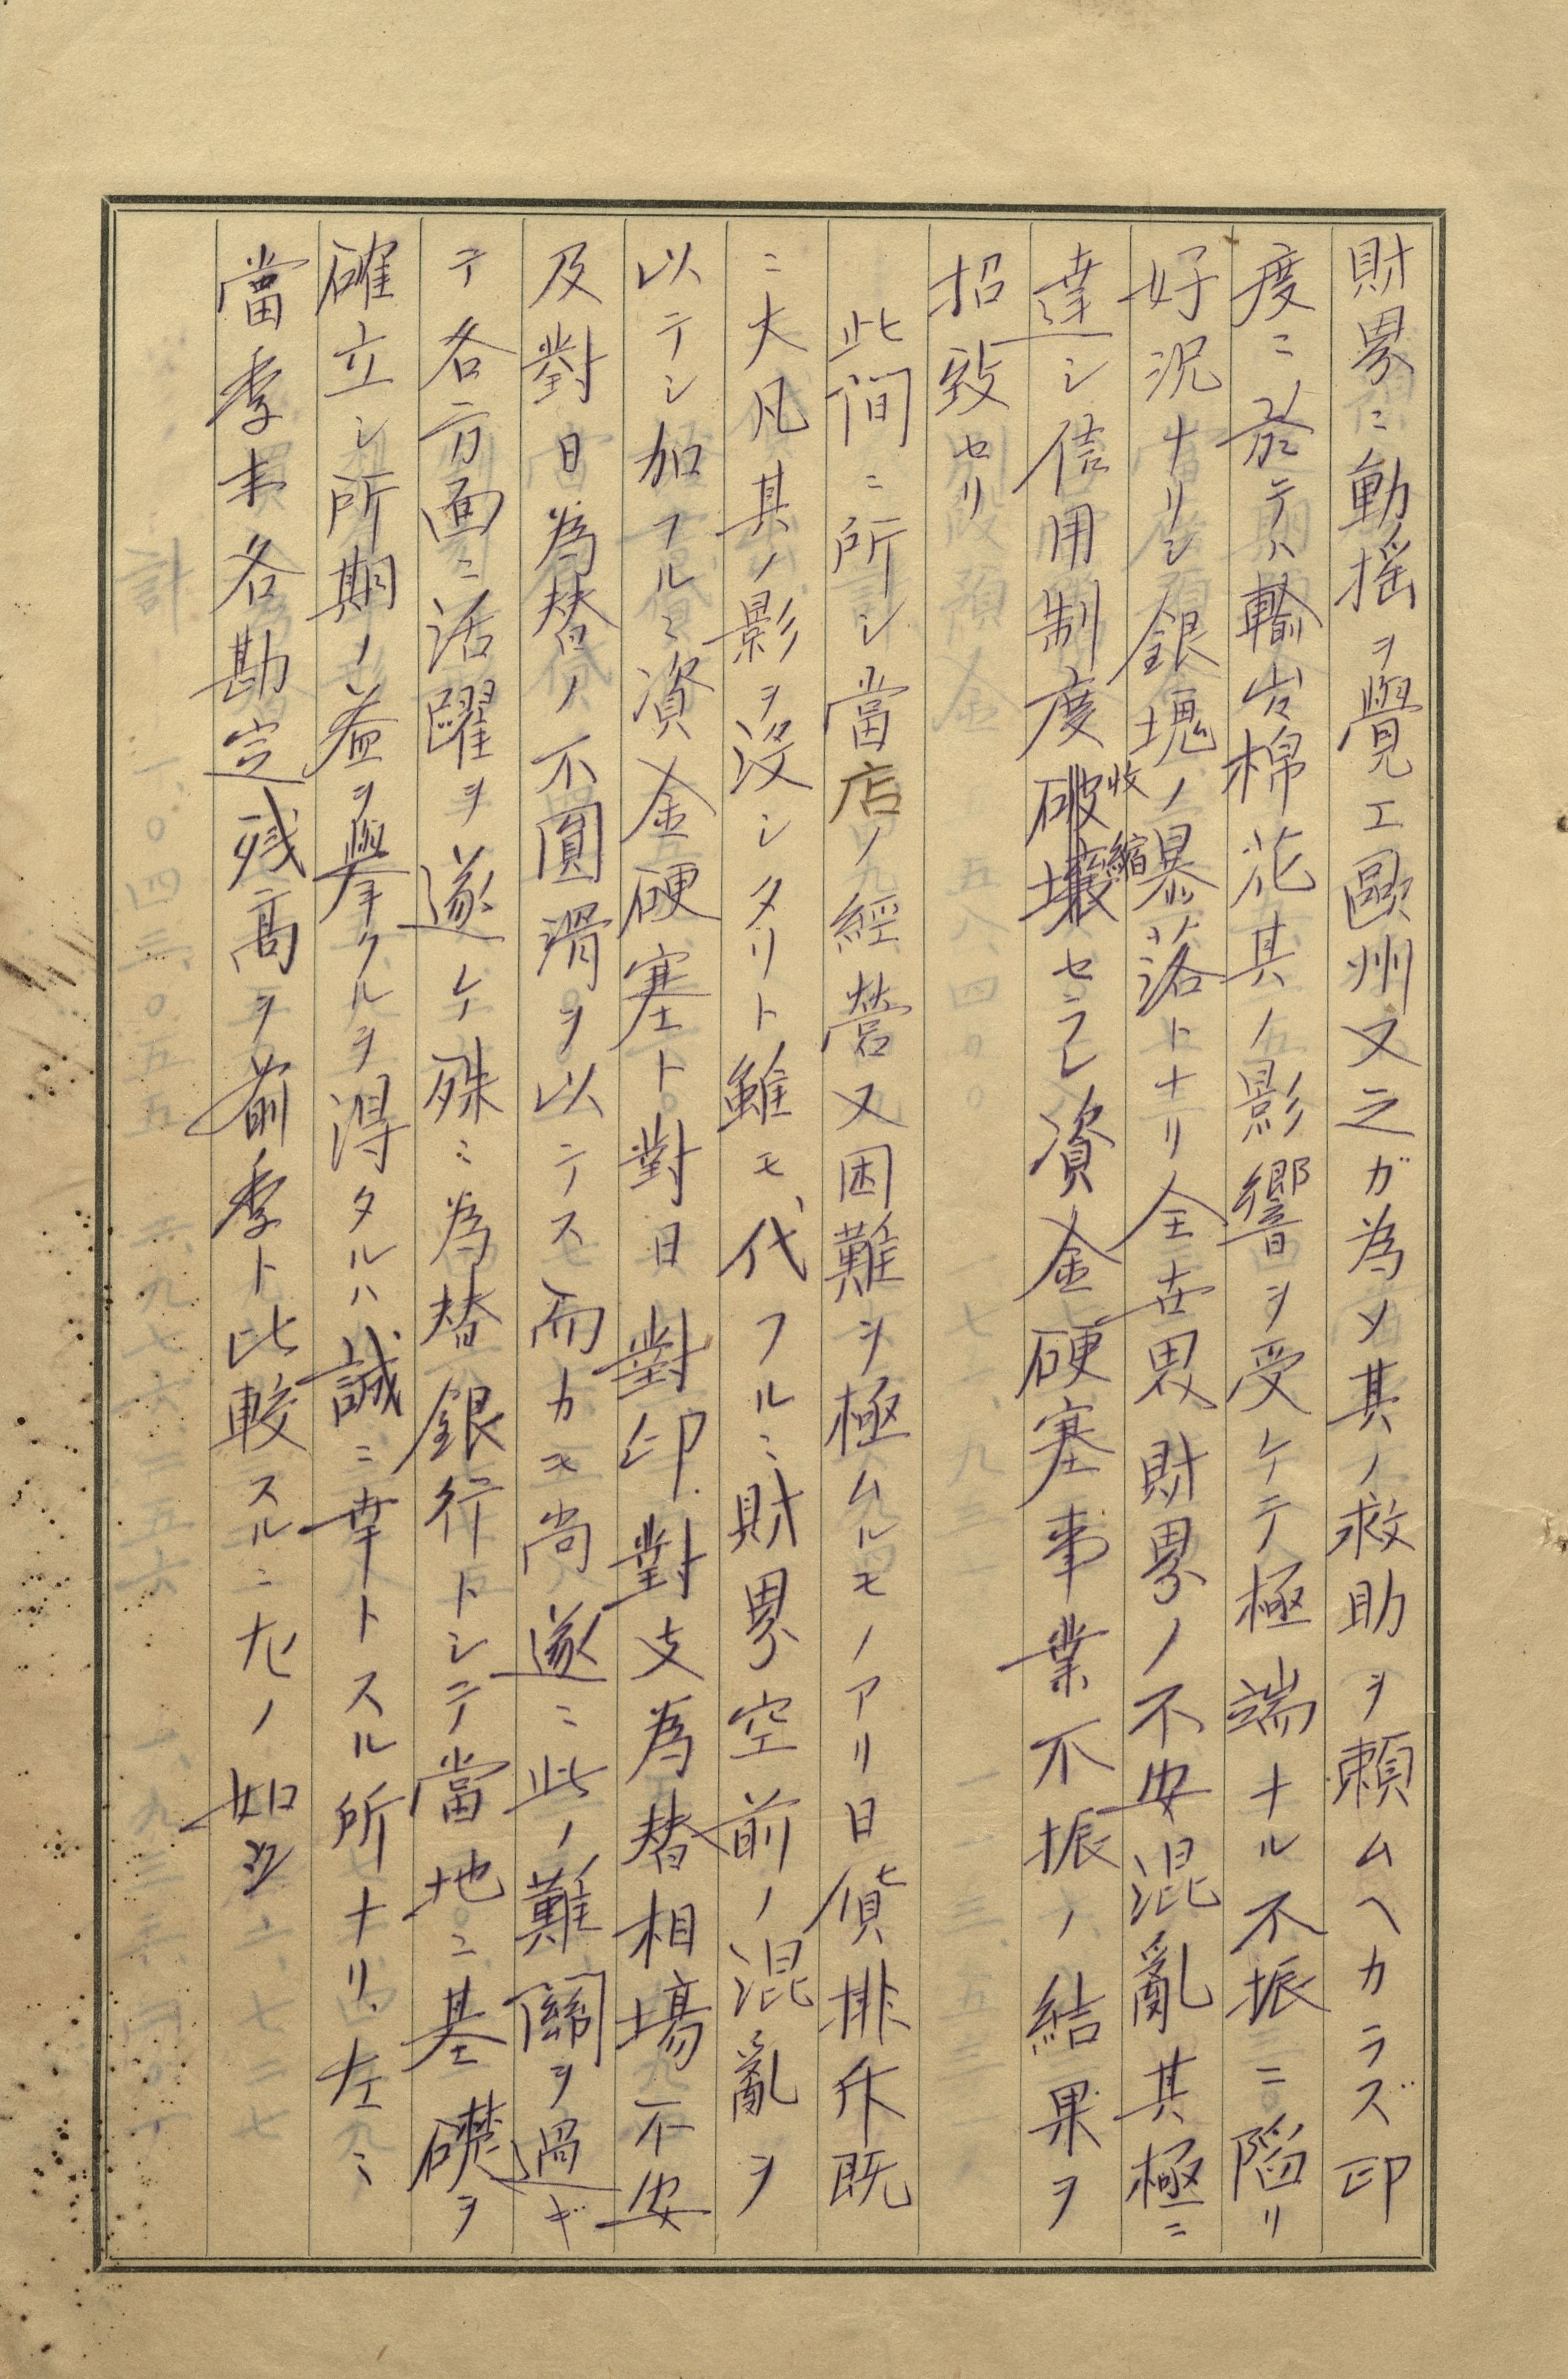 財界ニ動揺ヲ覺エ歐州又之ガ為メ其ノ救助ヲ頼ムヘカラズ印
度ニ於テハ輸出棉花其ノ影響ヲ受ケテ極端ナル不振ニ陥リ
好況ナリシ銀塊ノ暴落トナリ全世界財界ノ不安混亂其極ニ
達シ信用制度破壊収縮セラレ資金硬塞事業不振ノ結果ヲ
招致セリ
此間ニ所シ當店ノ經營又困難ヲ極ムルモノアリ日貨排斥既
ニ大凡其ノ影ヲ没シタリト雖モ、代フルニ財界空前ノ混亂ヲ
以テシ加フルニ資金硬塞ト對日對印對支為替相場不安
及對日為替ノ不圓滑ヲ以テス而カモ尚遂ニ此ノ難關ヲ過ギ
テ各方面ニ活躍ヲ遂ケ殊ニ為替銀行トシテ當地ニ基礎ヲ
確立シ所期ノ益ヲ擧クルヲ得タルハ誠ニ幸トスル所ナリ、左ニ
當季末各勘定残高ヲ前季ト比較スルニ九ノ如シ